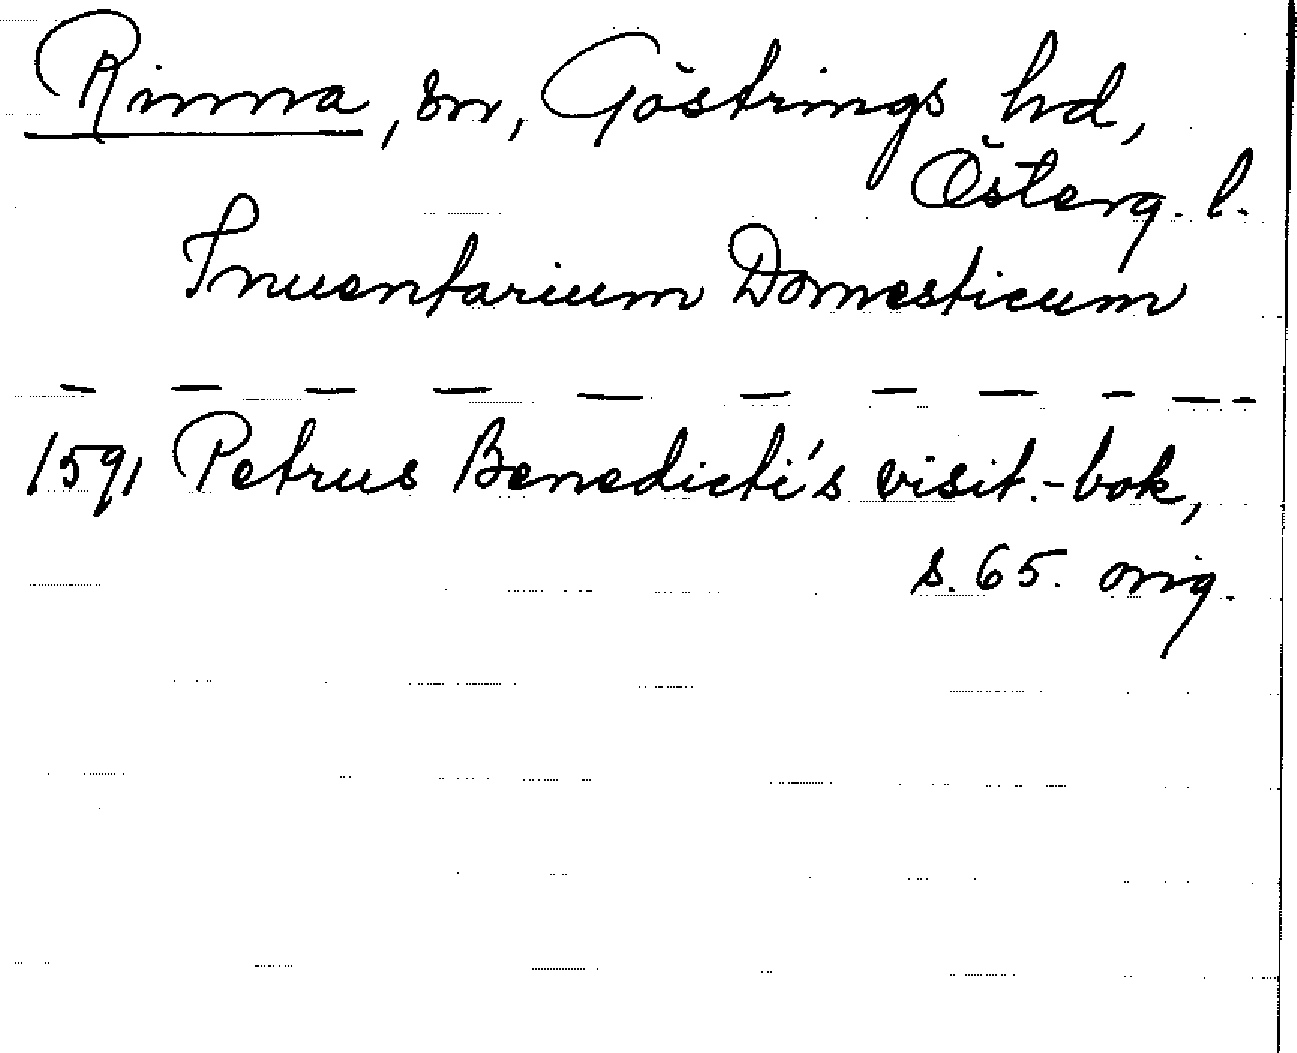 Rinna, sn, Göstrings hd,
Österg. l.
Inventarium Domesticum
1591 Petrus Benedicti's visit.-bok,
s. 65. orig.